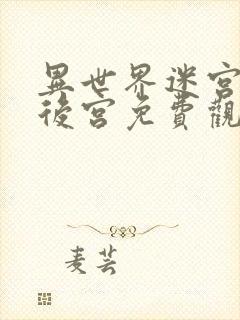 異世界迷宮
後宮免費觀
麦芸